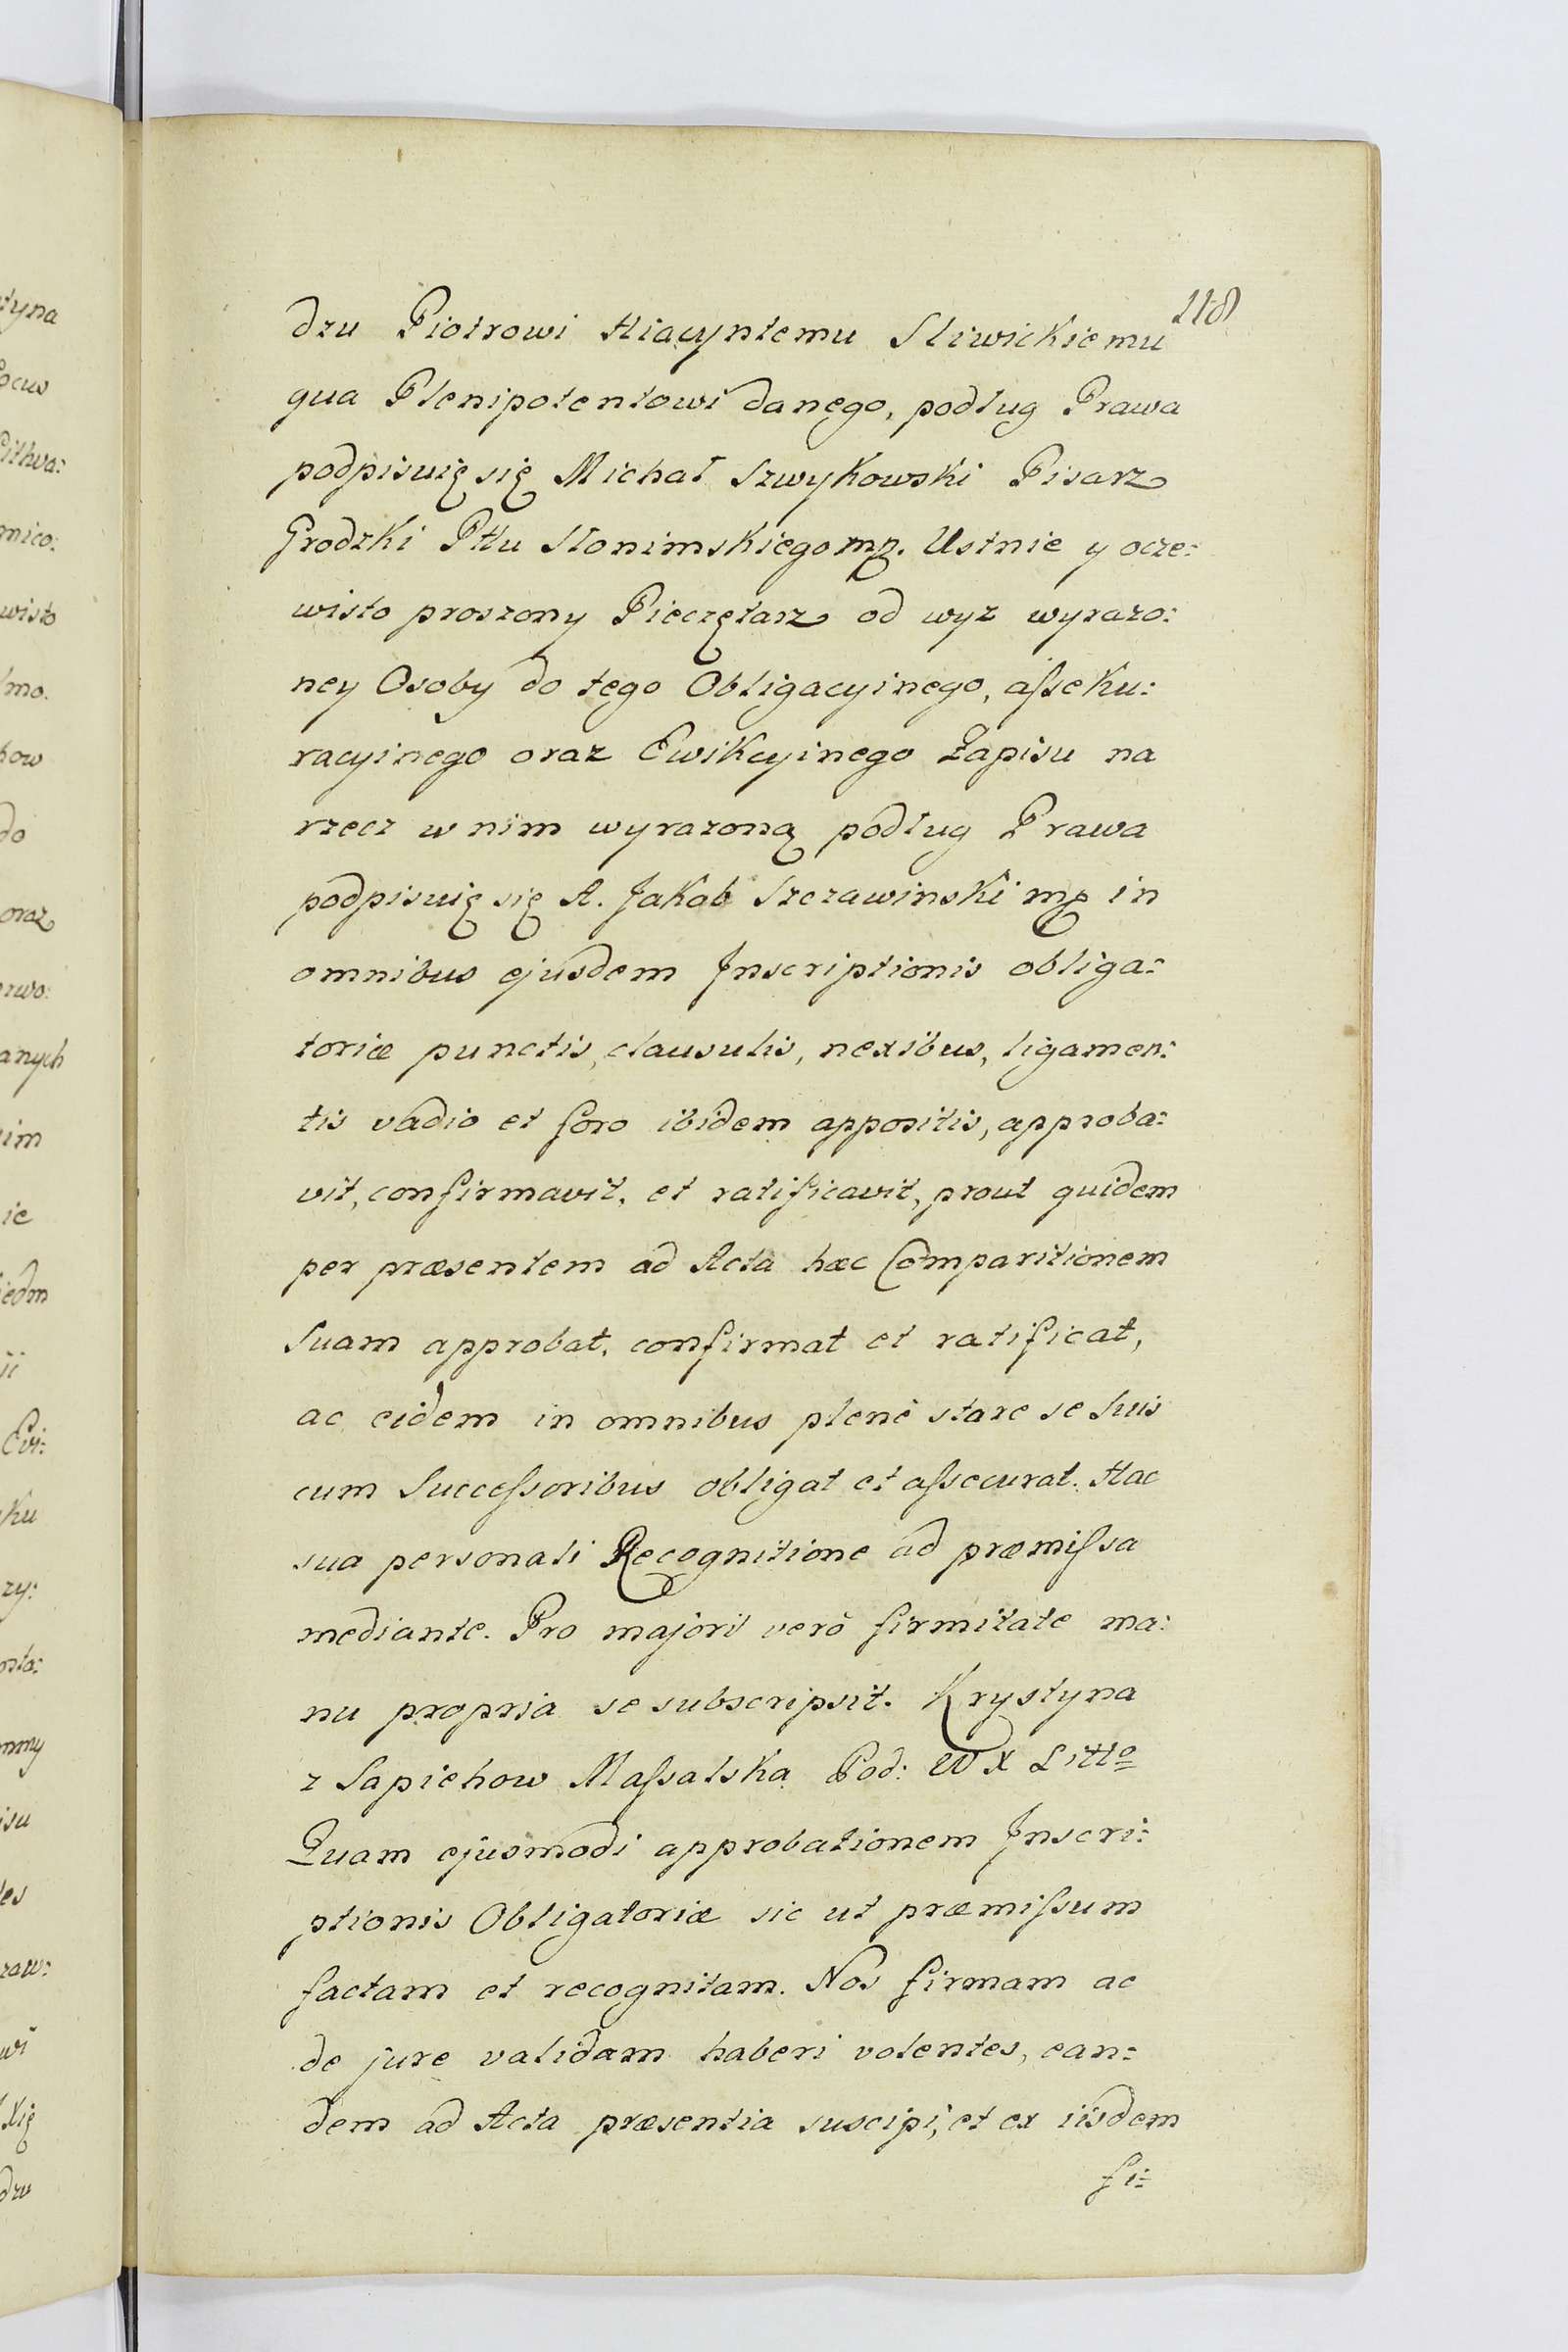 118
dzu Piotrowi Hiacyntemu Sliwickiemu
qua Plenipotentowi danego, podług Prawa
podpisuię się Michał Szwykowski Pisarz
Grodzki Pttu Słonimskiego mp. Ustnie y ocze:
wisto proszony Pieczętarz od wyz wyrazo:
ney Osoby do tego Obligacyinego, aſseku:
racyinego oraz Ewikcyinego Zapisu na
rzecz w nim wyrazoną podług Prawa
podpisuię się A. Jakob Szczawinski mp in
omnibus ejusdem Inscriptionis obliga:
toriæ punctis, clausulis, nexibus, ligamen:
tis vadio et foro ibidem appositis, approba:
vit, confirmavit, et ratificavit, prout quidem
per præsentem ad Acta hæc Comparitionem
Suam approbat, confirmat et ratificat,
ac eidem in omnibus plenè stare se Suis
cum Succeſsoribus obligat et aſsecurat. Hac
sua personali Recognitione ad præmiſsa
mediante. Pro majori verò firmitate ma:
nu propria se subscripsit. Krystyna
z Sapiehow Maſsalska Pod: W X Litto
Quam ejusmodi approbationem Inscri:
ptionis Obligatoriæ sic ut præmiſsum
factam et recognitam. Nos firmam ac
de jure validam haberi volentes, ean:
dem ad Acta præsentia suscipi, et ex iisdem
fi:
tyna
wisto
how
do
oraz
anych
im
ie
Evi:
ku
zy:
isu
wi
dzu